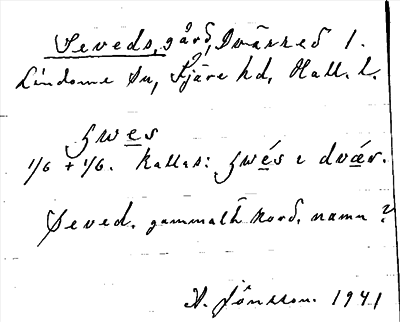 Seveds, gård, Dvärred 1.
Lindome Sn, Fjäre hd, Hall. l.
1/6 + 1/6. Kallas:
Seved. gammalt nord. namn?
A. Jönsson. 1941